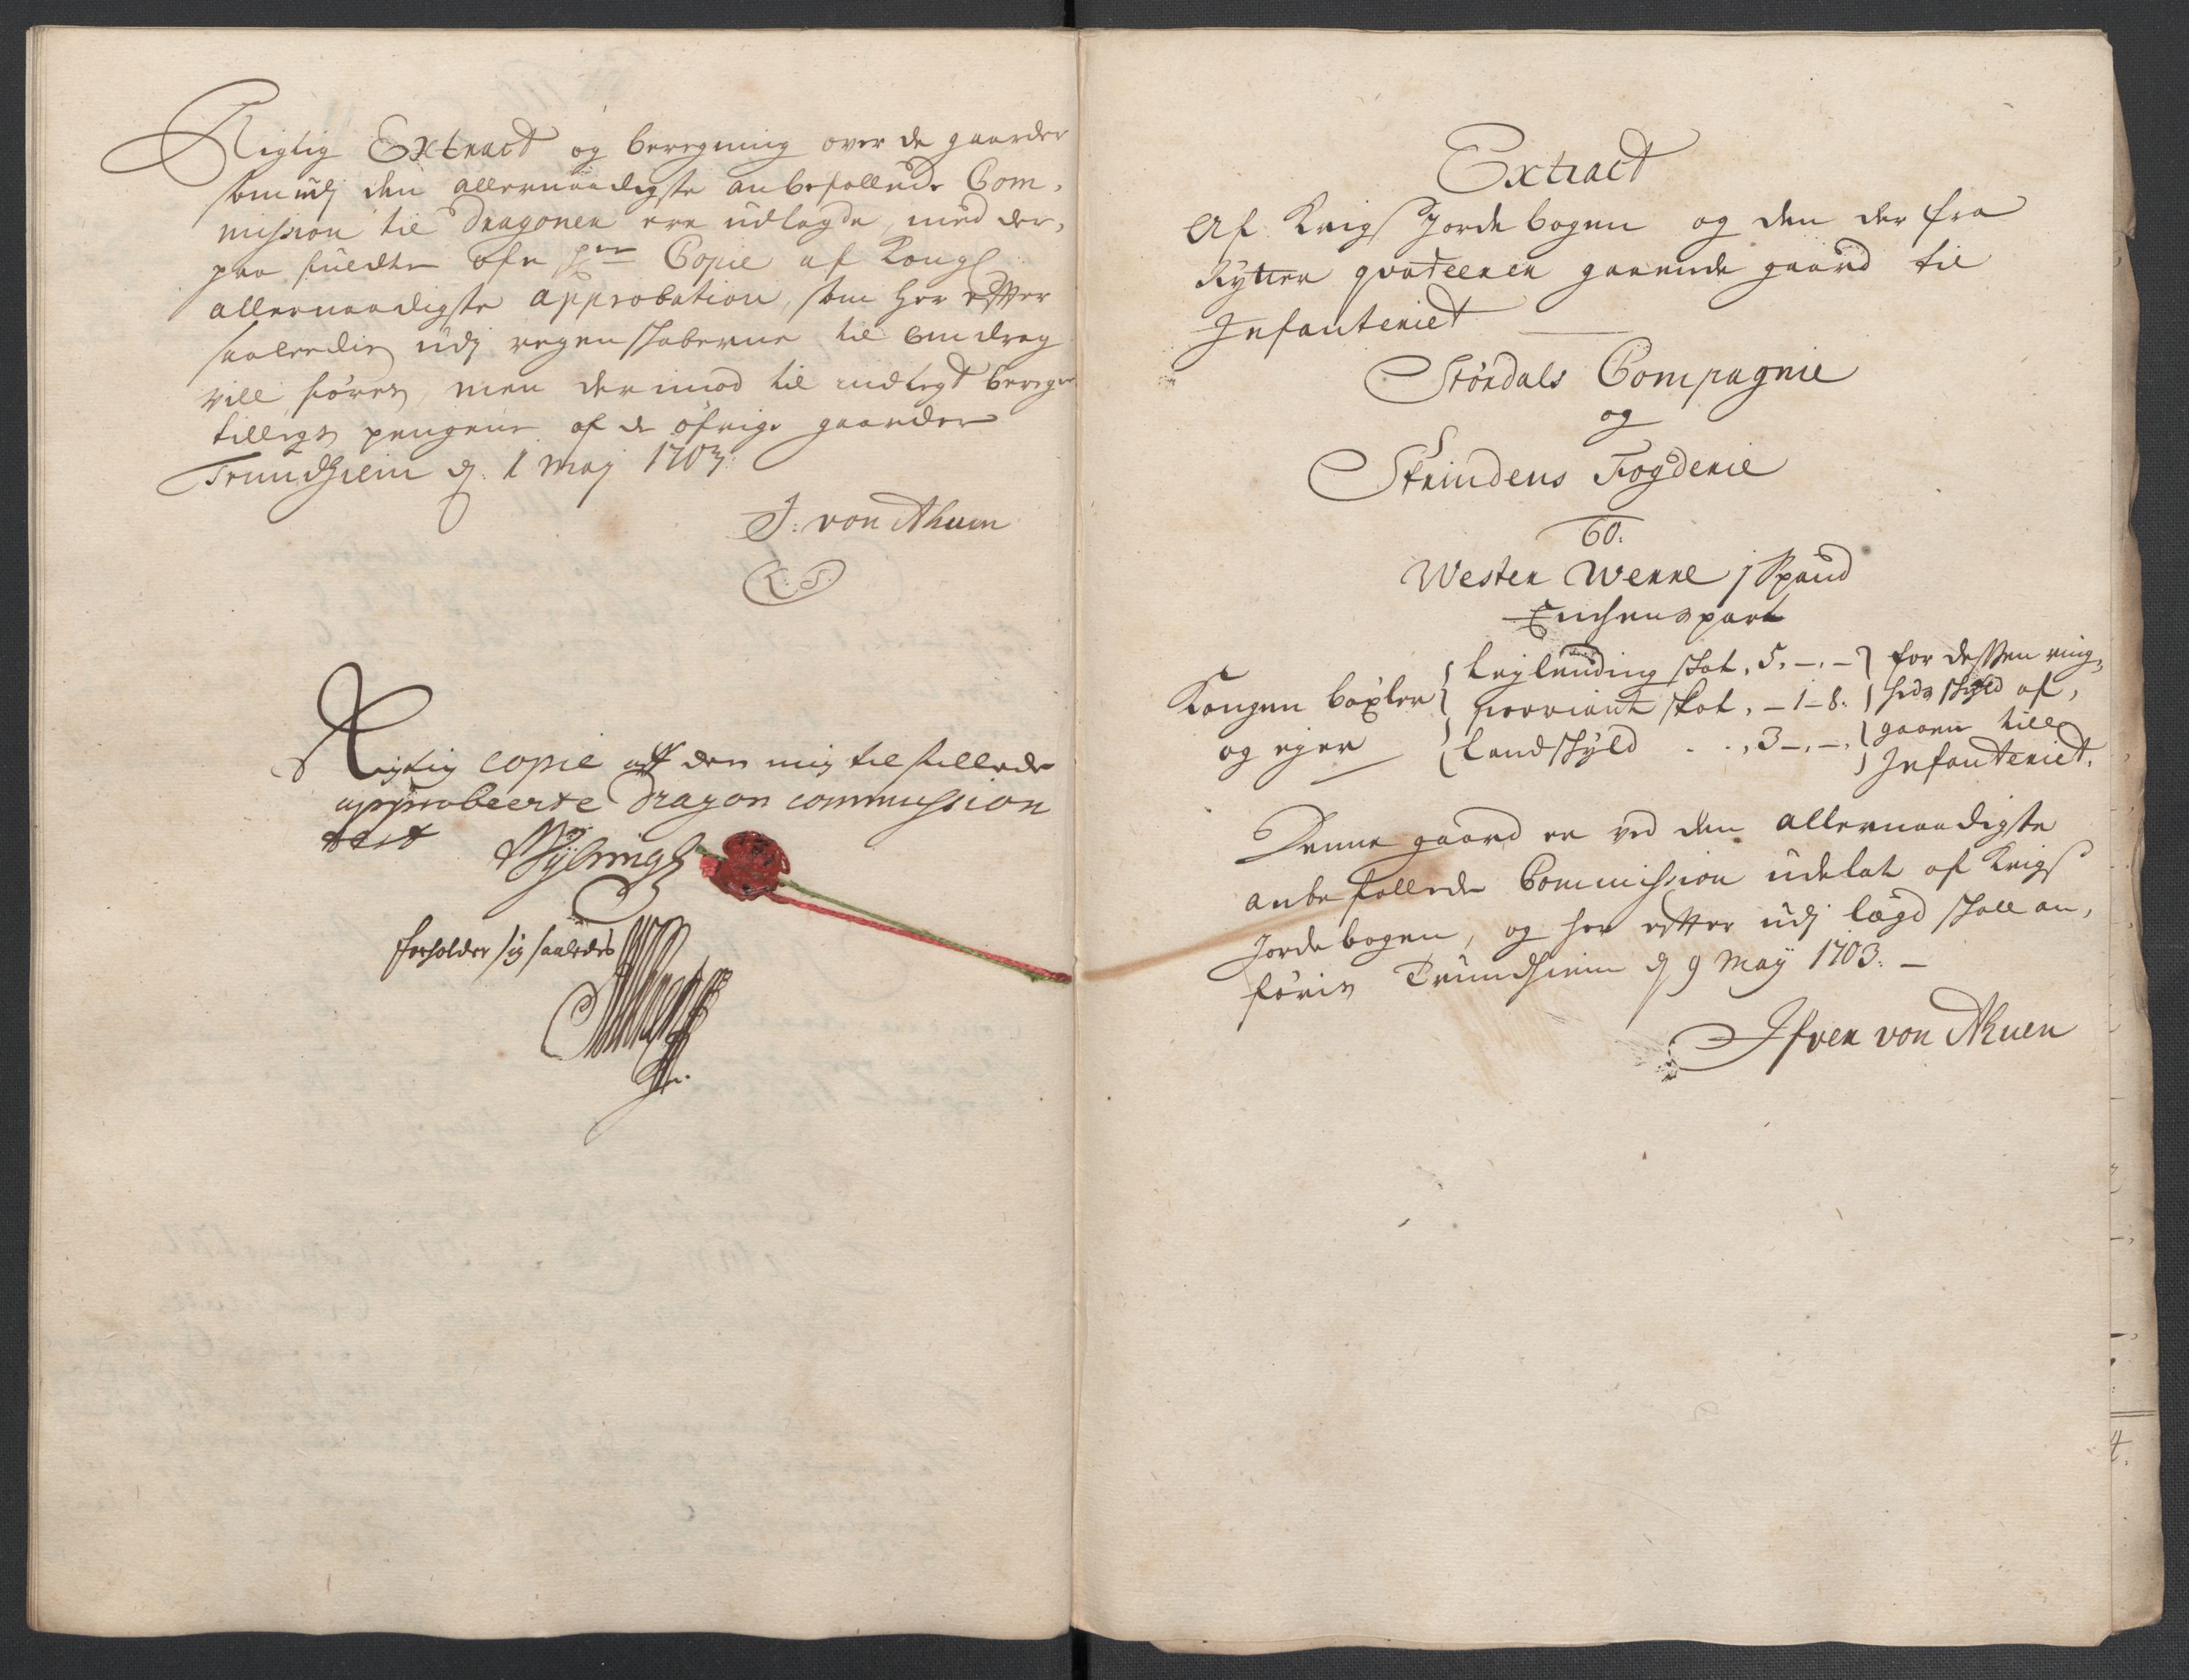 Rigtig Extract og beregning over de gaarder
som udj den allernaadigste anbefallede Com,
mission til Dragoner ere udlagde, med der,
paa fuldte Copie af Kongl
allernaadigste approbation, som her effter
saaledis udj regenskaberne til afdrag
vill føres, men derimod til indtegt beregn
tillegs pengene af de øfrige gaarder
Trundhiem d. 1 Maj 1703.
J: von Ahnen
L. S.
Rigtig copie aff den mig tilstillede
approbeerte Dragon commission
test
forholder sig saaledes
Extract
Af Krigs Jordebogen og den der fra
Rytter qvarteeren gaaende gaard til
Infanteriet
Størdals Compagnie
og
Strindens Fogderie
60.
Wester Wenne j Spand
Enchens part
Kongen bøxler
og ejer
Lejlending skat, 5, -, -
proviant skat, - 1 - 8.
Landskyld . . , 3 -, -,
for dessen ring,
heds skyld af,
gaaen till
Infanteriet.
Denne gaard er ved den allernaadigste
anbefallede Commission udelat af Krigs
Jordebogen, og her effter udj lægd skall an,
føris Trundhiem d 9 Maÿ 1703. -
Ifver von Ahnen